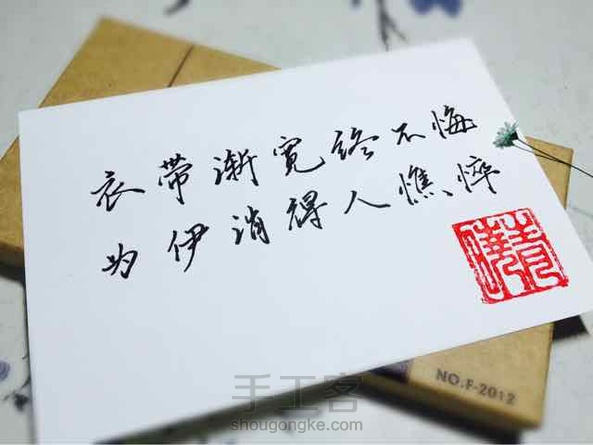 衣带渐宽终不悔
为伊消得人憔悴
NO.F-2012
手工客
shougongke.com